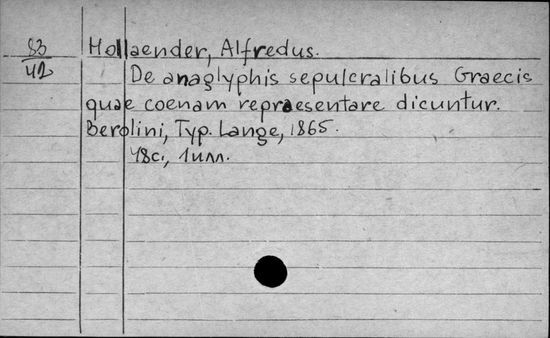 83 Hollaender, Alfredus.
42 De anaglyphis sepulcralibus Graecis
quae coenam repraesentare dicuntur.
Berolini, Typ. Lange, 1865.
48с., 1илл.